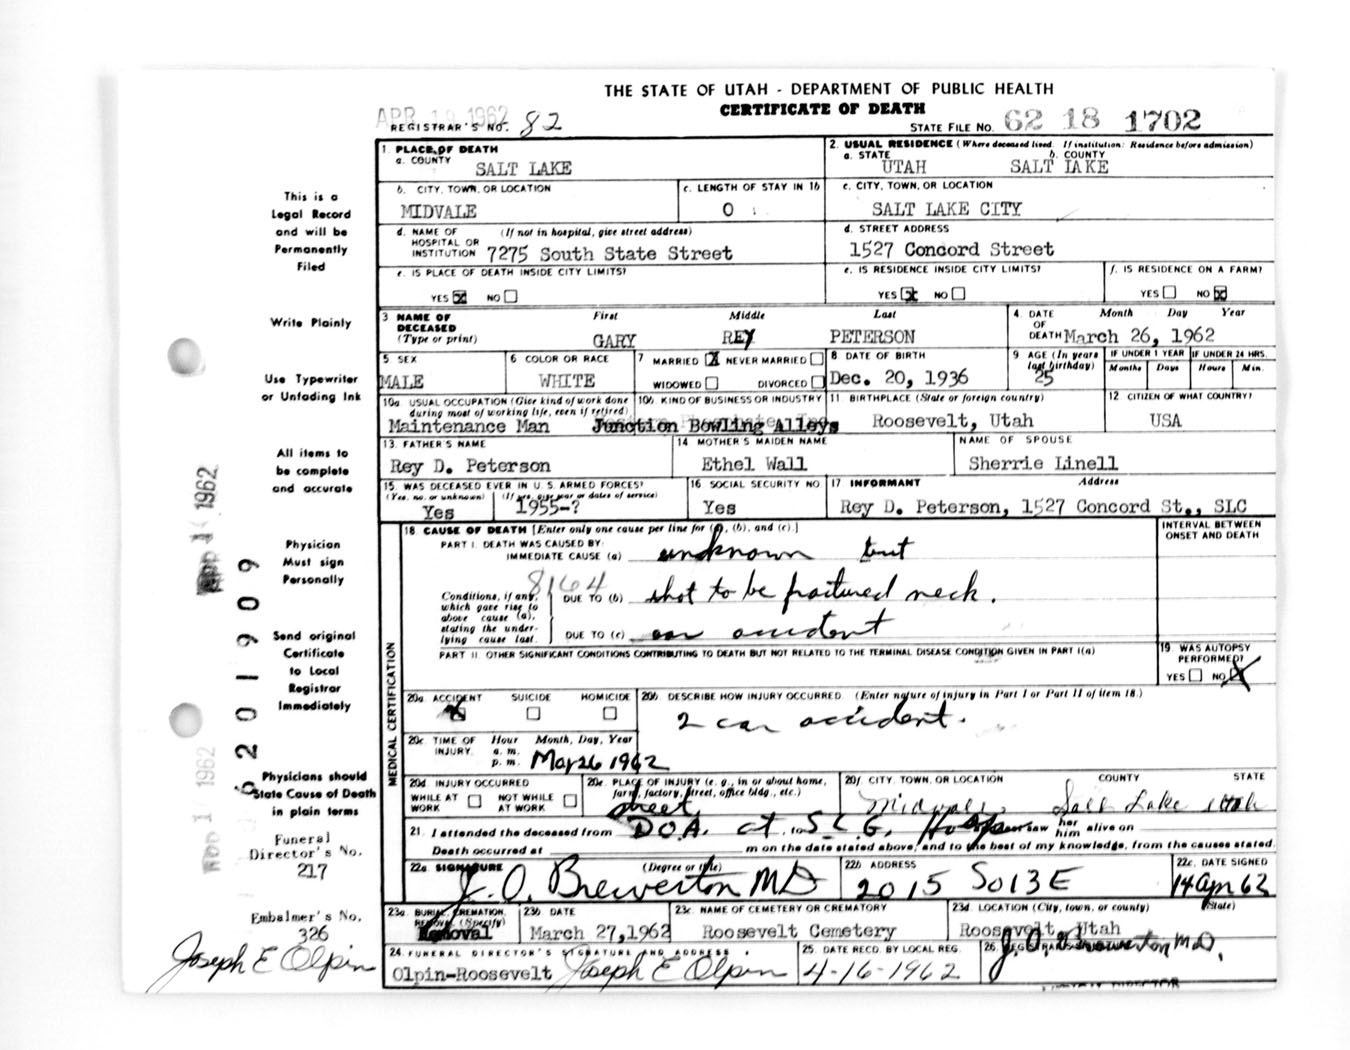 THE STATE OF UTAH - DEPARTMENT OF PUBLIC HEALTH
CERTIFICATE OF DEATH
APR 1962
REGISTRAR'S NO. 82
STATE FILE NO. 62 18 1702
1. PLACE OF DEATH
a. COUNTY SALT LAKE
2. USUAL RESIDENCE (Where deceased lived. If institution: Residence before admission)
a. STATE UTAH b. COUNTY SALT LAKE
b. CITY, TOWN, OR LOCATION MIDVALE
c. LENGTH OF STAY IN 1b 0
c. CITY, TOWN, OR LOCATION SALT LAKE CITY
d. NAME OF HOSPITAL OR INSTITUTION (If not in hospital, give street address) 7275 South State Street
d. STREET ADDRESS 1527 Concord Street
e. IS PLACE OF DEATH INSIDE CITY LIMITS? YES X NO
e. IS RESIDENCE INSIDE CITY LIMITS? YES X NO
f. IS RESIDENCE ON A FARM? YES NO X
3 NAME OF DECEASED (Type or print) First Middle Last
GARY REY PETERSON
4. DATE OF DEATH Month Day Year March 26, 1962
5 SEX MALE
6 COLOR OR RACE WHITE
7 MARRIED X NEVER MARRIED WIDOWED DIVORCED
8 DATE OF BIRTH Dec. 20, 1936
9 AGE (In years last birthday) 25
IF UNDER 1 YEAR Months Days
IF UNDER 24 HRS. Hours Min.
10a USUAL OCCUPATION (Give kind of work done during most of working life, even if retired) Maintenance Man
10b KIND OF BUSINESS OR INDUSTRY Junction Bowling Alleys
11 BIRTHPLACE (State or foreign country) Roosevelt, Utah
12 CITIZEN OF WHAT COUNTRY? USA
13. FATHER'S NAME Rey D. Peterson
14 MOTHER'S MAIDEN NAME Ethel Wall
NAME OF SPOUSE Sherrie Linell
15. WAS DECEASED EVER IN U. S. ARMED FORCES? (Yes, no, or unknown) Yes (If yes, give war or dates of service) 1955-?
16 SOCIAL SECURITY NO Yes
17 INFORMANT Address Rey D. Peterson, 1527 Concord St., SLC
18. CAUSE OF DEATH [Enter only one cause per line for (a), (b), and (c).]
INTERVAL BETWEEN ONSET AND DEATH
PART I. DEATH WAS CAUSED BY:
IMMEDIATE CAUSE (a) unknown but
8164
Conditions, if any, which gave rise to above cause (a), stating the under-lying cause last.
DUE TO (b) to be fractured neck.
DUE TO (c) car accident
PART II. OTHER SIGNIFICANT CONDITIONS CONTRIBUTING TO DEATH BUT NOT RELATED TO THE TERMINAL DISEASE CONDITION GIVEN IN PART I(a)
19. WAS AUTOPSY PERFORMED? YES NO X
MEDICAL CERTIFICATION
20a ACCIDENT X SUICIDE HOMICIDE
20b DESCRIBE HOW INJURY OCCURRED. (Enter nature of injury in Part I or Part II of item 18.)
2 car accident.
20c TIME OF INJURY. Hour Month, Day, Year a. m. p. m. Mar 26 1962
20d INJURY OCCURRED WHILE AT WORK NOT WHILE AT WORK
20e. PLACE OF INJURY (e. g., in or about home, farm, factory, street, office bldg., etc.) street
20f. CITY, TOWN, OR LOCATION COUNTY STATE
Midvale Salt Lake Utah
21. I attended the deceased from D.O.A. at to S.L.G. Hosp saw her him alive on
Death occurred at m on the date stated above, and to the best of my knowledge, from the causes stated.
22a SIGNATURE (Degree or title) J. O. Brewerton MD
22b ADDRESS 2015 So 13 E
22c. DATE SIGNED 14 Apr 62
23a. BURIAL, CREMATION, REMOVAL (Specify) Removal
23b DATE March 27,1962
23c NAME OF CEMETERY OR CREMATORY Roosevelt Cemetery
23d LOCATION (City, town, or county) (State) Roosevelt, Utah
24. FUNERAL DIRECTOR'S SIGNATURE AND ADDRESS Olpin-Roosevelt Joseph E Olpin
25. DATE RECD. BY LOCAL REG. 4-16-1962
26. J. O. Brewerton M.D.
This is a
Legal Record
and will be
Permanently
Filed
Write Plainly
Use Typewriter
or Unfading Ink
All items to
be complete
and accurate
Physician
Must sign
Personally
Send original
Certificate
to Local
Registrar
Immediately
Physicians should
State Cause of Death
in plain terms
Funeral
Director's No.
217
Embalmer's No.
326
Joseph E Olpin
1962
62 01909
1962